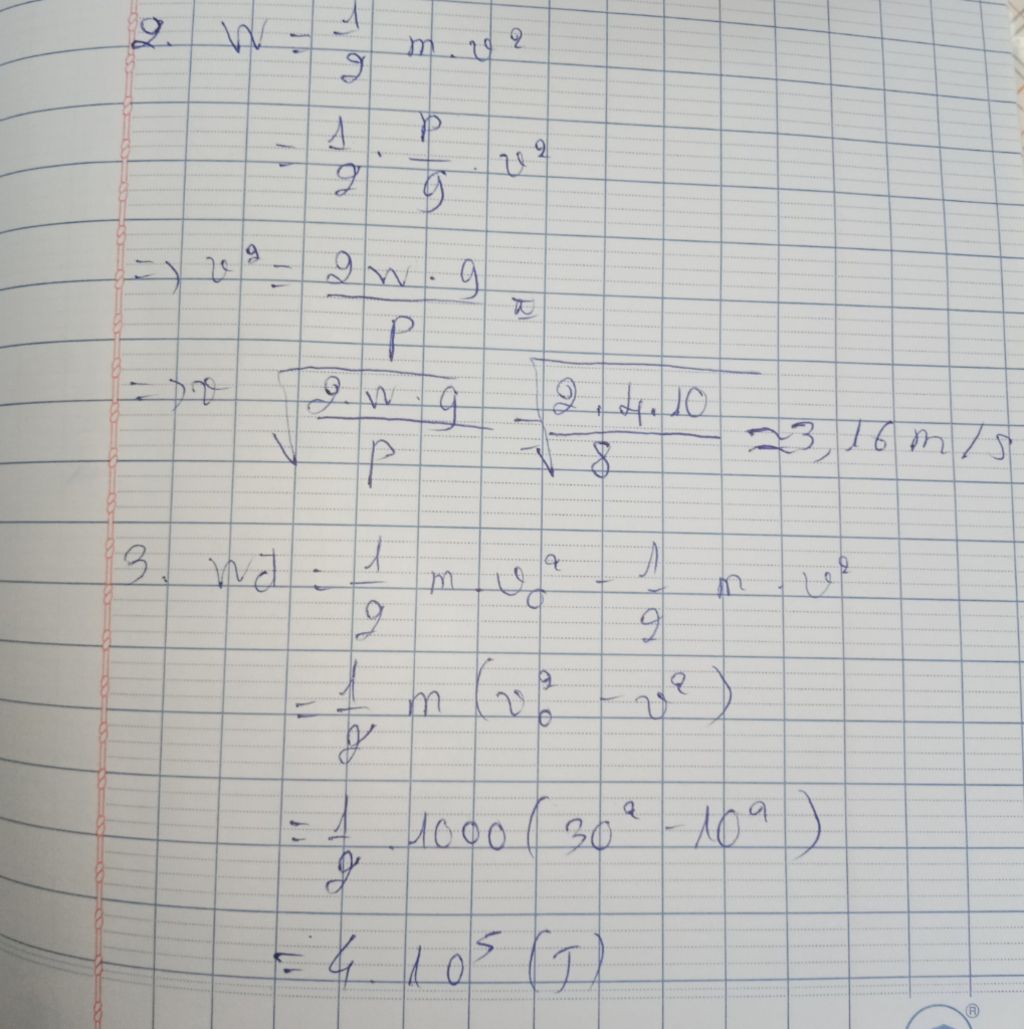 2. W = 1/2 m . v²
= 1/2 . P/g . v²
=> v² = 2W . g / P =
=> v √(2.W.g / P) = √(2.4.10 / 8) ≈ 3,16 m/s
3. Wđ = 1/2 m . v₀² - 1/2 m . v²
= 1/2 m (v₀² - v²)
= 1/2 . 1000 (30² - 10²)
= 4.10⁵ (J)
®